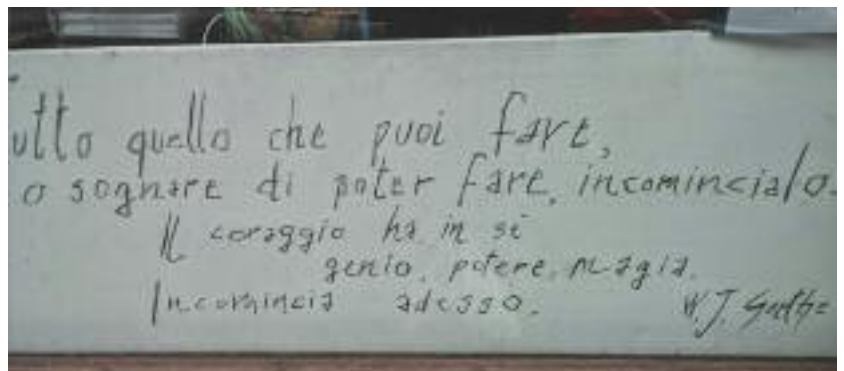 Tutto quello che puoi fare,
o sognare di poter fare, incomincialo.
Il coraggio ha in sé
genio, potere, magia.
Incomincia adesso.
W. J. Goethe